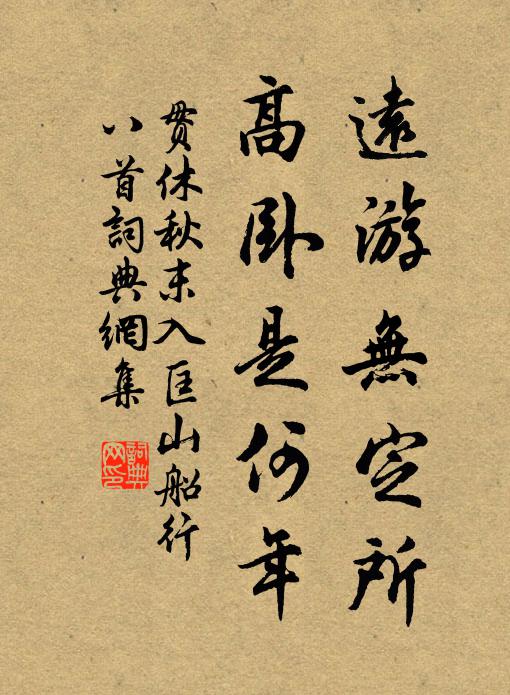 遠游無定所
高卧是何年
貫休秋末入匡山船行
八首詞典網集
詞典網印